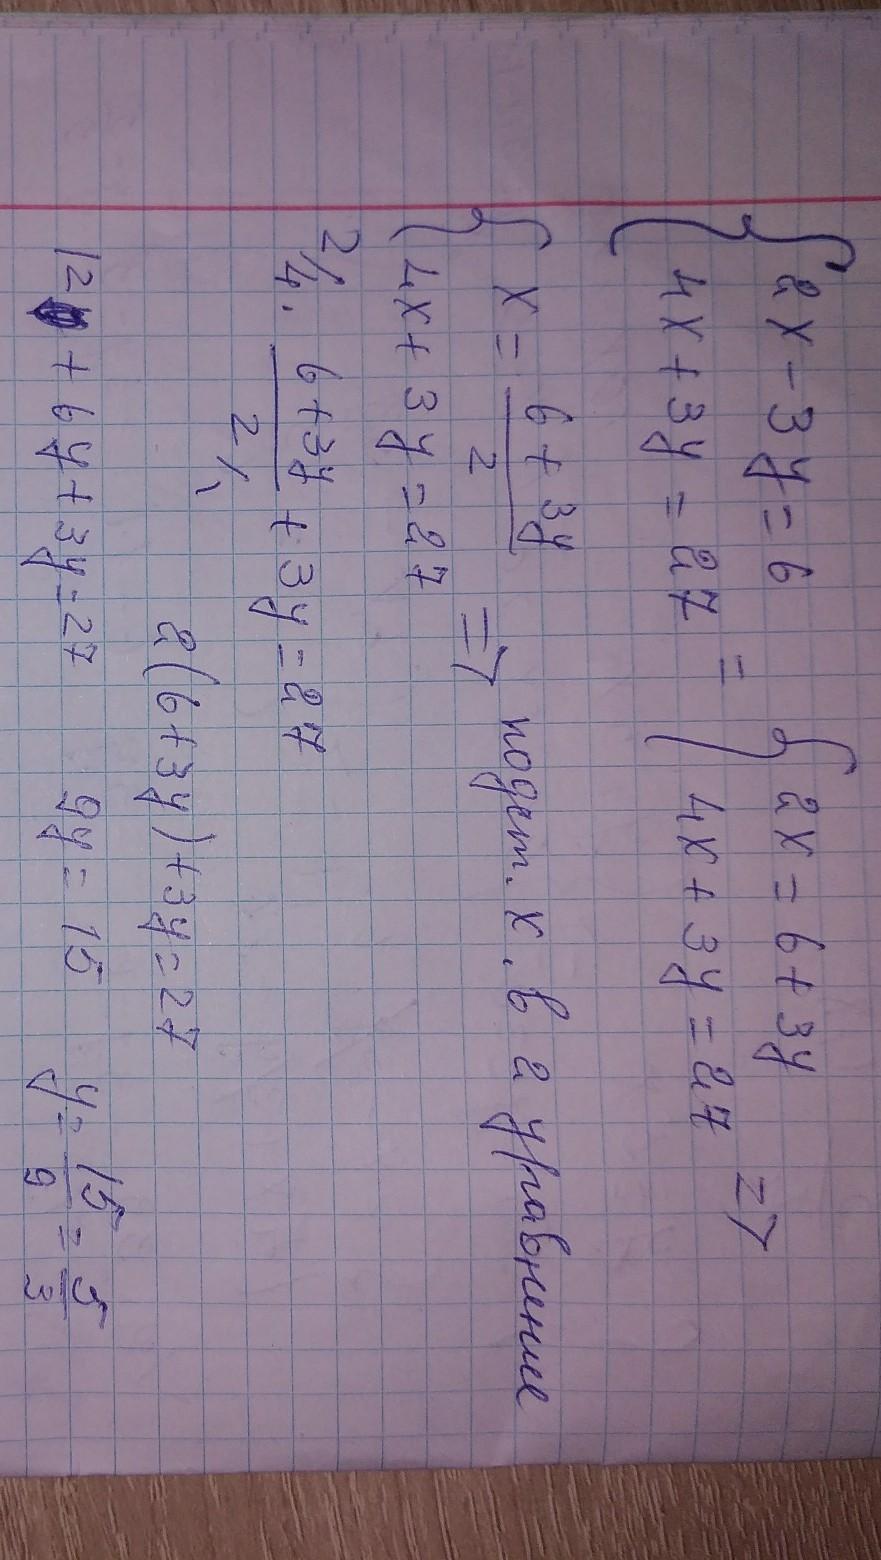 { 2x - 3y = 6   { 2x = 6 + 3y
{ 4x + 3y = 27 = { 4x + 3y = 27 =>
{ x = (6 + 3y)/2
{ 4x + 3y = 27 => подст. x. в 2 уравнение
2/4 · (6 + 3y)/2 \ + 3y = 27
2(6 + 3y) + 3y = 27
12 + 6y + 3y = 27   9y = 15   y = 15/9 = 5/3